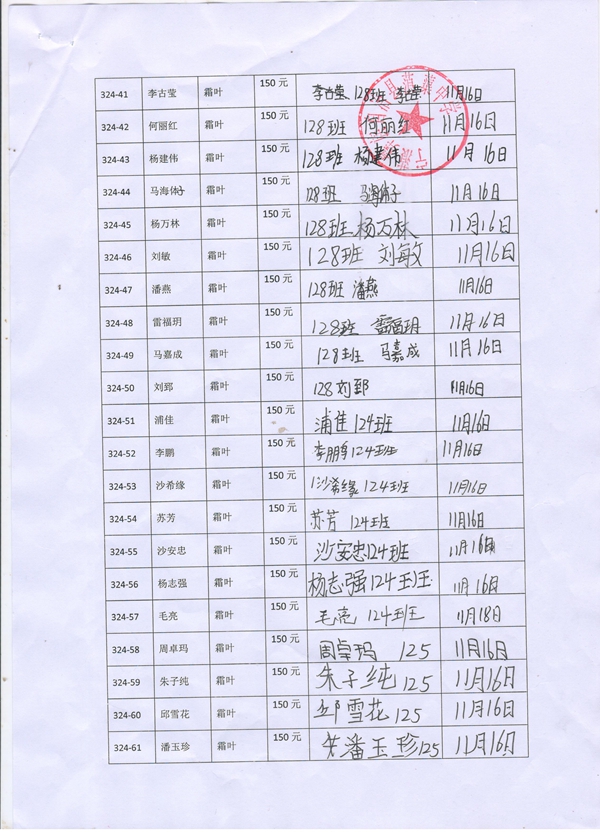 324-41 李古莹 霜叶 150 元 李古莹 128班 李古莹 11月16日
324-42 何丽红 霜叶 150 元 128班 何丽红 11月16日
324-43 杨建伟 霜叶 150 元 128班 杨建伟 11月16日
324-44 马海体子 霜叶 150 元 128班 马海体子 11月16日
324-45 杨万林 霜叶 150 元 128班 杨万林 11月16日
324-46 刘敏 霜叶 150 元 128班 刘敏 11月16日
324-47 潘燕 霜叶 150 元 128班 潘燕 11月16日
324-48 雷福玥 霜叶 150 元 128班 雷福玥 11月16日
324-49 马嘉成 霜叶 150 元 128班 马嘉成 11月16日
324-50 刘郅 霜叶 150 元 128刘郅 11月16日
324-51 浦佳 霜叶 150 元 浦佳 124班 11月16日
324-52 李鹏 霜叶 150 元 李鹏 124班 11月16日
324-53 沙希缘 霜叶 150 元 沙希缘 124班 11月16日
324-54 苏芳 霜叶 150 元 苏芳 124班 11月16日
324-55 沙安忠 霜叶 150 元 沙安忠124班 11月16日
324-56 杨志强 霜叶 150 元 杨志强124班 11月16日
324-57 毛亮 霜叶 150 元 毛亮 124班 11月18日
324-58 周卓玛 霜叶 150 元 周卓玛 125 11月16日
324-59 朱子纯 霜叶 150 元 朱子纯125 11月16日
324-60 邱雪花 霜叶 150 元 邱雪花125 11月16日
324-61 潘玉珍 霜叶 150 元 潘玉珍125 11月16日